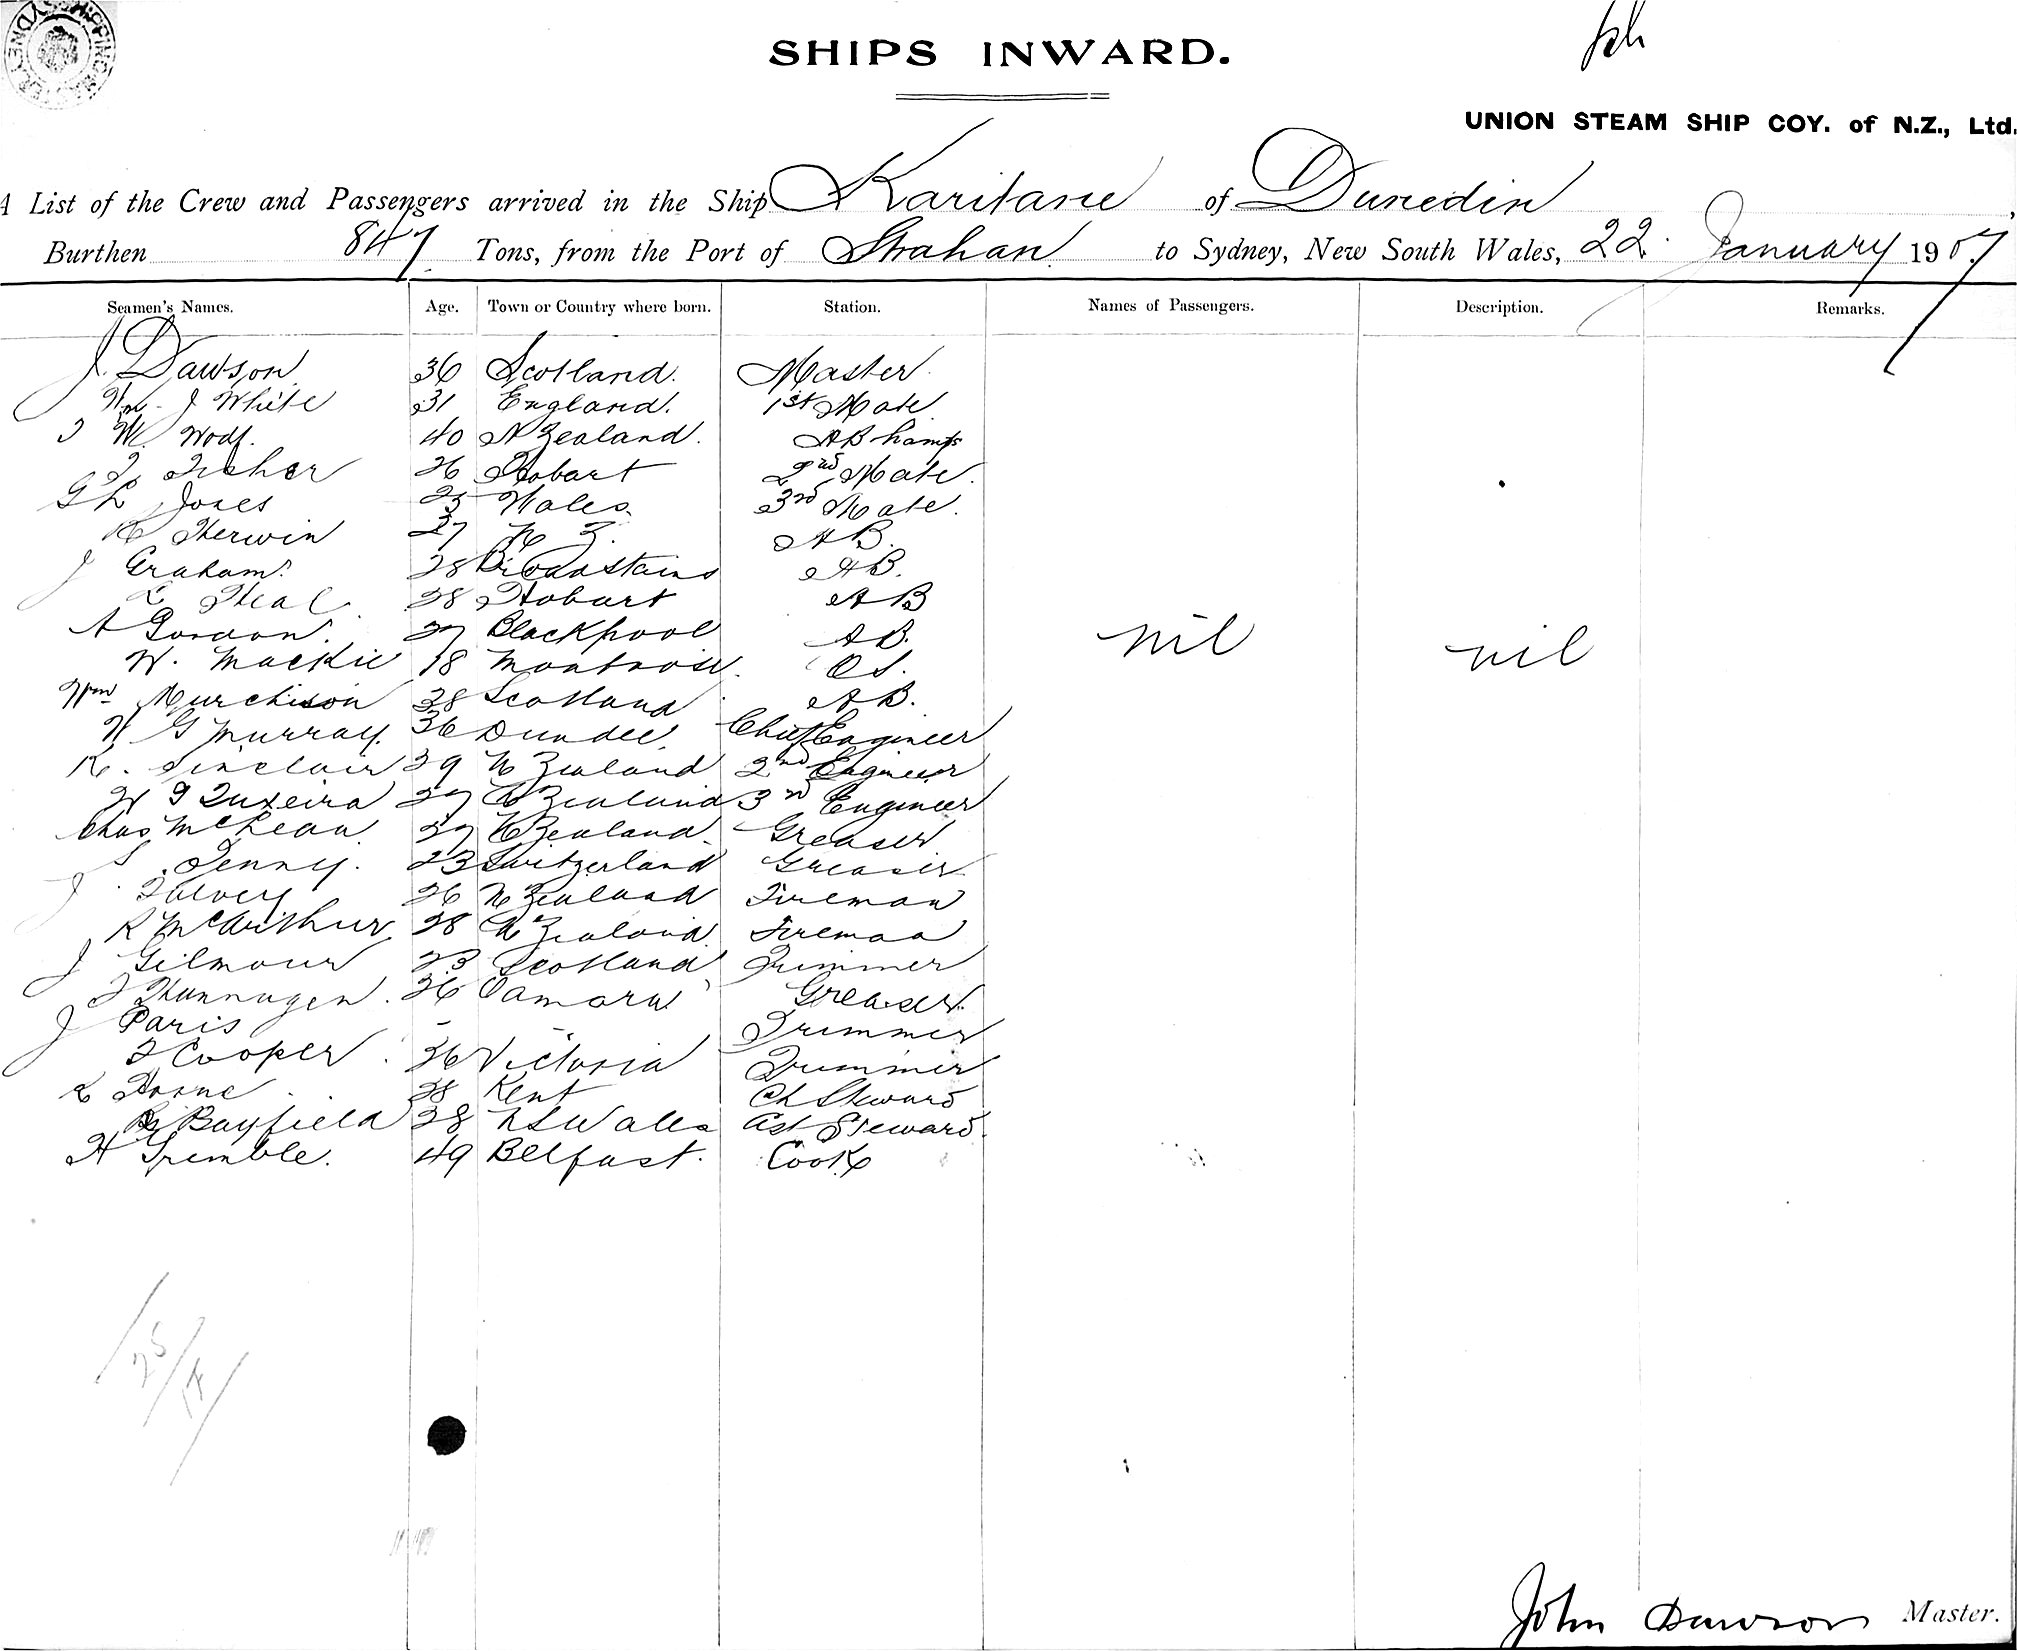 SHIPS INWARD.
UNION STEAM SHIP COY. of N.Z., Ltd.
A List of the Crew and Passengers arrived in the Ship Karitane of Dunedin
Burthen 847 Tons, from the Port of Strahan to Sydney, New South Wales, 22 January 1907
Seamen's Names. Age. Town or Country where born. Station. Names of Passengers. Description. Remarks.
J. Dawson 36 Scotland. Master
Wm. J White 31 England. 1st Mate
40 N Zealand. AB Lamps
Fisher 26 Hobart 2nd Mate.
G L Jones 25 Wales. 3rd Mate.
Kerwin 27 N Z. AB.
J Graham. 28 AB.
28 Hobart AB
A Gordon. 27 Blackpool AB.
W. Mackie 18 Montrose. OS.
nil nil
Wm Murchison 38 Scotland AB.
W G Murray. 36 Dundee. Chief Engineer
R. Sinclair 29 N Zealand 2nd Engineer
W 27 N Zealand 3rd Engineer
Chas McLean 27 N Zealand. Greaser
S. Jenny. 23 Switzerland Greaser
J 26 N Zealand Fireman
R McArthur. 28 N Zealand. Fireman
J Gilmour 23 Scotland Trimmer
26 Greaser.
J Paris - - Trimmer
J Cooper. 26 Victoria Trimmer
28 Kent Ch Steward
Bayfield 28 N S Wales Ast Steward.
H Trimble. 49 Belfast. Cook
John Dawson Master.